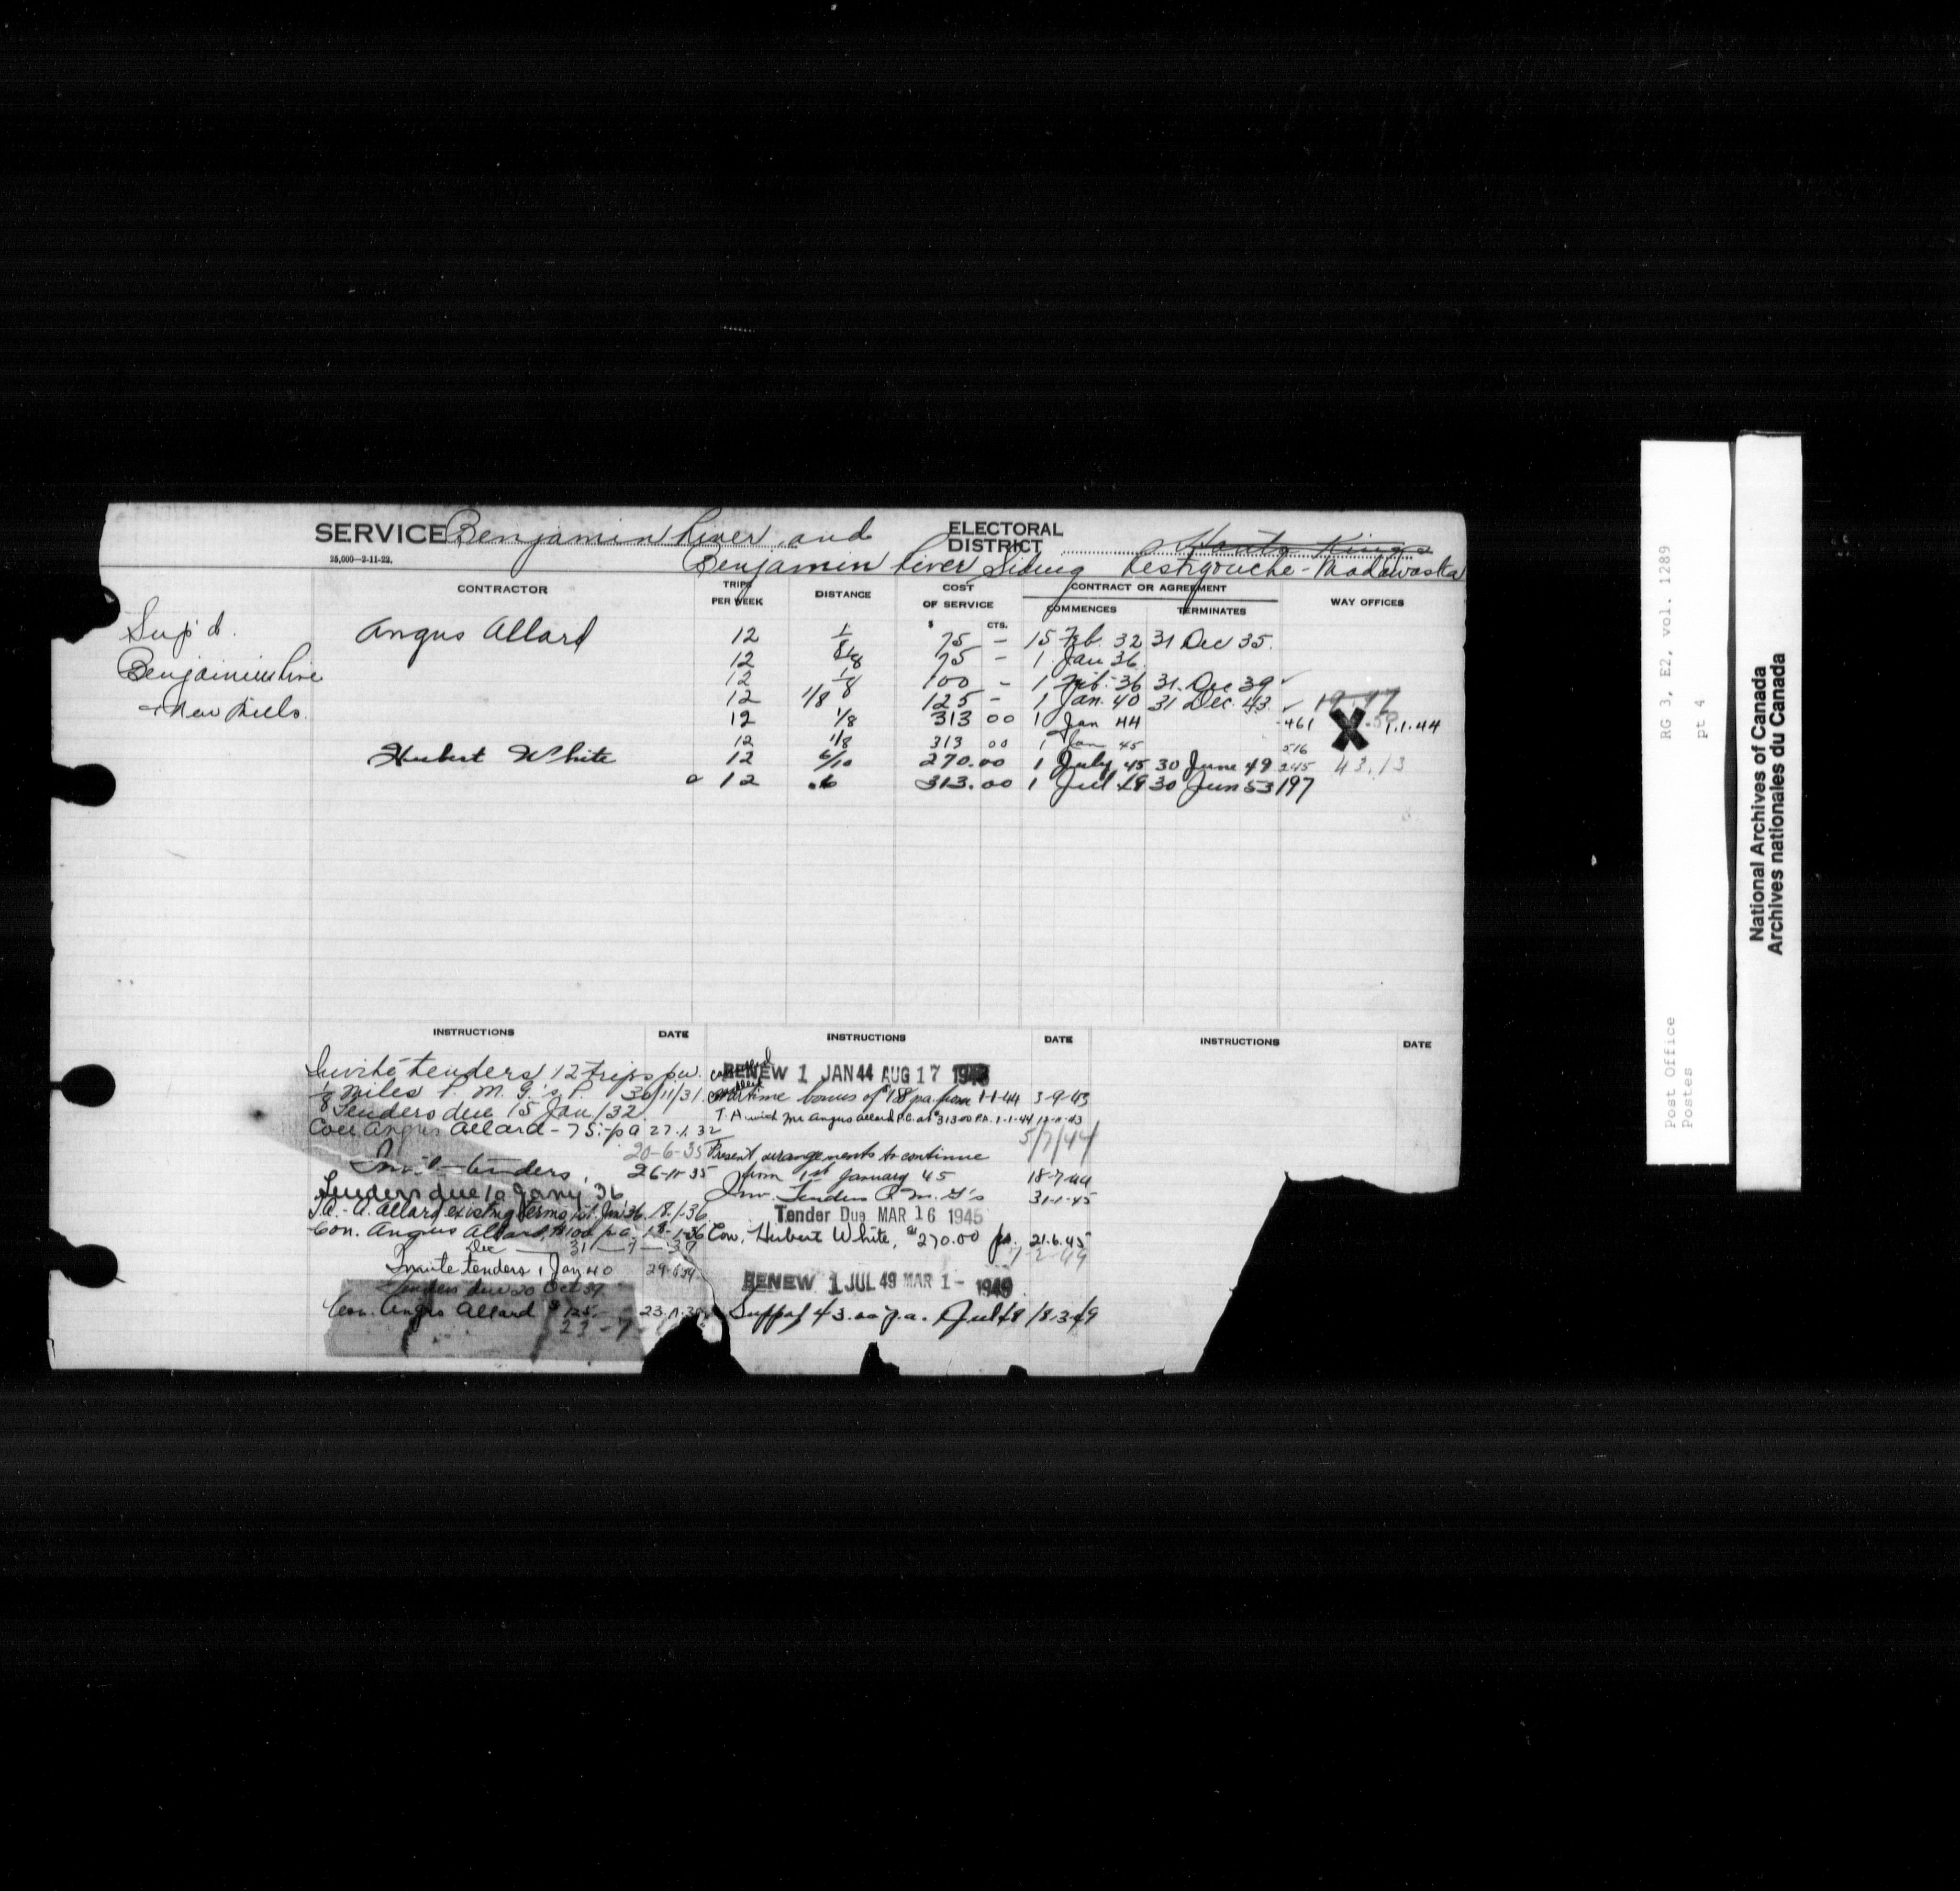 SERVICE Benjamin River and
ELECTORAL DISTRICT Hants Kings
25,000—2-11-22.
Benjamin River Siding Restigouche-Madawaska
CONTRACTOR TRIPS PER WEEK DISTANCE COST OF SERVICE CONTRACT OR AGREEMENT WAY OFFICES
COMMENCES TERMINATES
$ CTS.
Sup'd. Angus Allard 12 1/8 75 – 15 Feb. 32 31 Dec 35.
12 1/8 75 – 1 Jan 36.
Benjamin River 12 1/8 100 – 1 Feb. 36 31. Dec 39 ✓
12 1/8 125 – 1 Jan. 40 31 Dec. 43. ✓ 19.97
+ New Mills. 12 1/8 313 00 1 Jan 44 461 X .50 1.1.44
12 1/8 313 00 1 Jan 45 516
Hubert White 12 6/10 270.00 1 July 45 30 June 49 245 43.13
a 12 .6 313.00 1 Jul 49 30 Jun 53 197
INSTRUCTIONS DATE INSTRUCTIONS DATE INSTRUCTIONS DATE
Invite tenders 12 trips p.w.
1/8 miles P. M. G.'s P. 30/11/31.
Tenders due 15 Jan/32
Con Angus Allard – 75.– pa 27.1.32
20-6-35
Invite tenders, 26-11-35
Tenders due 10 Jany 36
T.A.- A. Allard existing terms 1st. Jan 36. 18.1.36
Con. Angus Allard, $100 p a. 18-1-36
Dec 31 – 7 – 39
Invite tenders 1 Jan 40
Tenders due 20 Oct 39
Con. Angus Allard $125.–
23 – 7 –
cancelled
RENEW 1 JAN 44 AUG 17 1943
cancelled
Wartime bonus of $188 pa from 1-1-44 3-9-43
T. A. with Mr Angus Allard P.C. at $313.00 P.A. 1-1-44
5/7/44
Present arrangements to continue
from 1st January 45 18-7-44
Inv. Tenders P. M. G's 31-1-45
Tender Due MAR 16 1945
Con. Hubert White, @ $270.00 pa. 21.6.45
7-2-49
RENEW 1 JUL 49 MAR 1 - 1949
Suppof 43.00 p.a. 1 Jul 49 18-3-49
Post Office RG 3, E2, vol. 1289
Postes pt 4
National Archives of Canada
Archives nationales du Canada